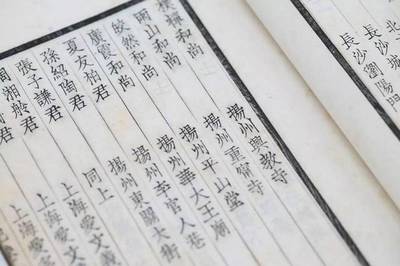 北
長沙城
長沙瀏陽門
和尚 揚州興教寺
山和尚 揚州重甯寺
皎然和尚 揚州平山堂
霞和尚 揚州華大王廟
夏友柏君 揚州李官人巷
孫紹陶君 揚州東關大街
張子謙君 同上
周湘舲君 上海愛文義
上海愛文
上海